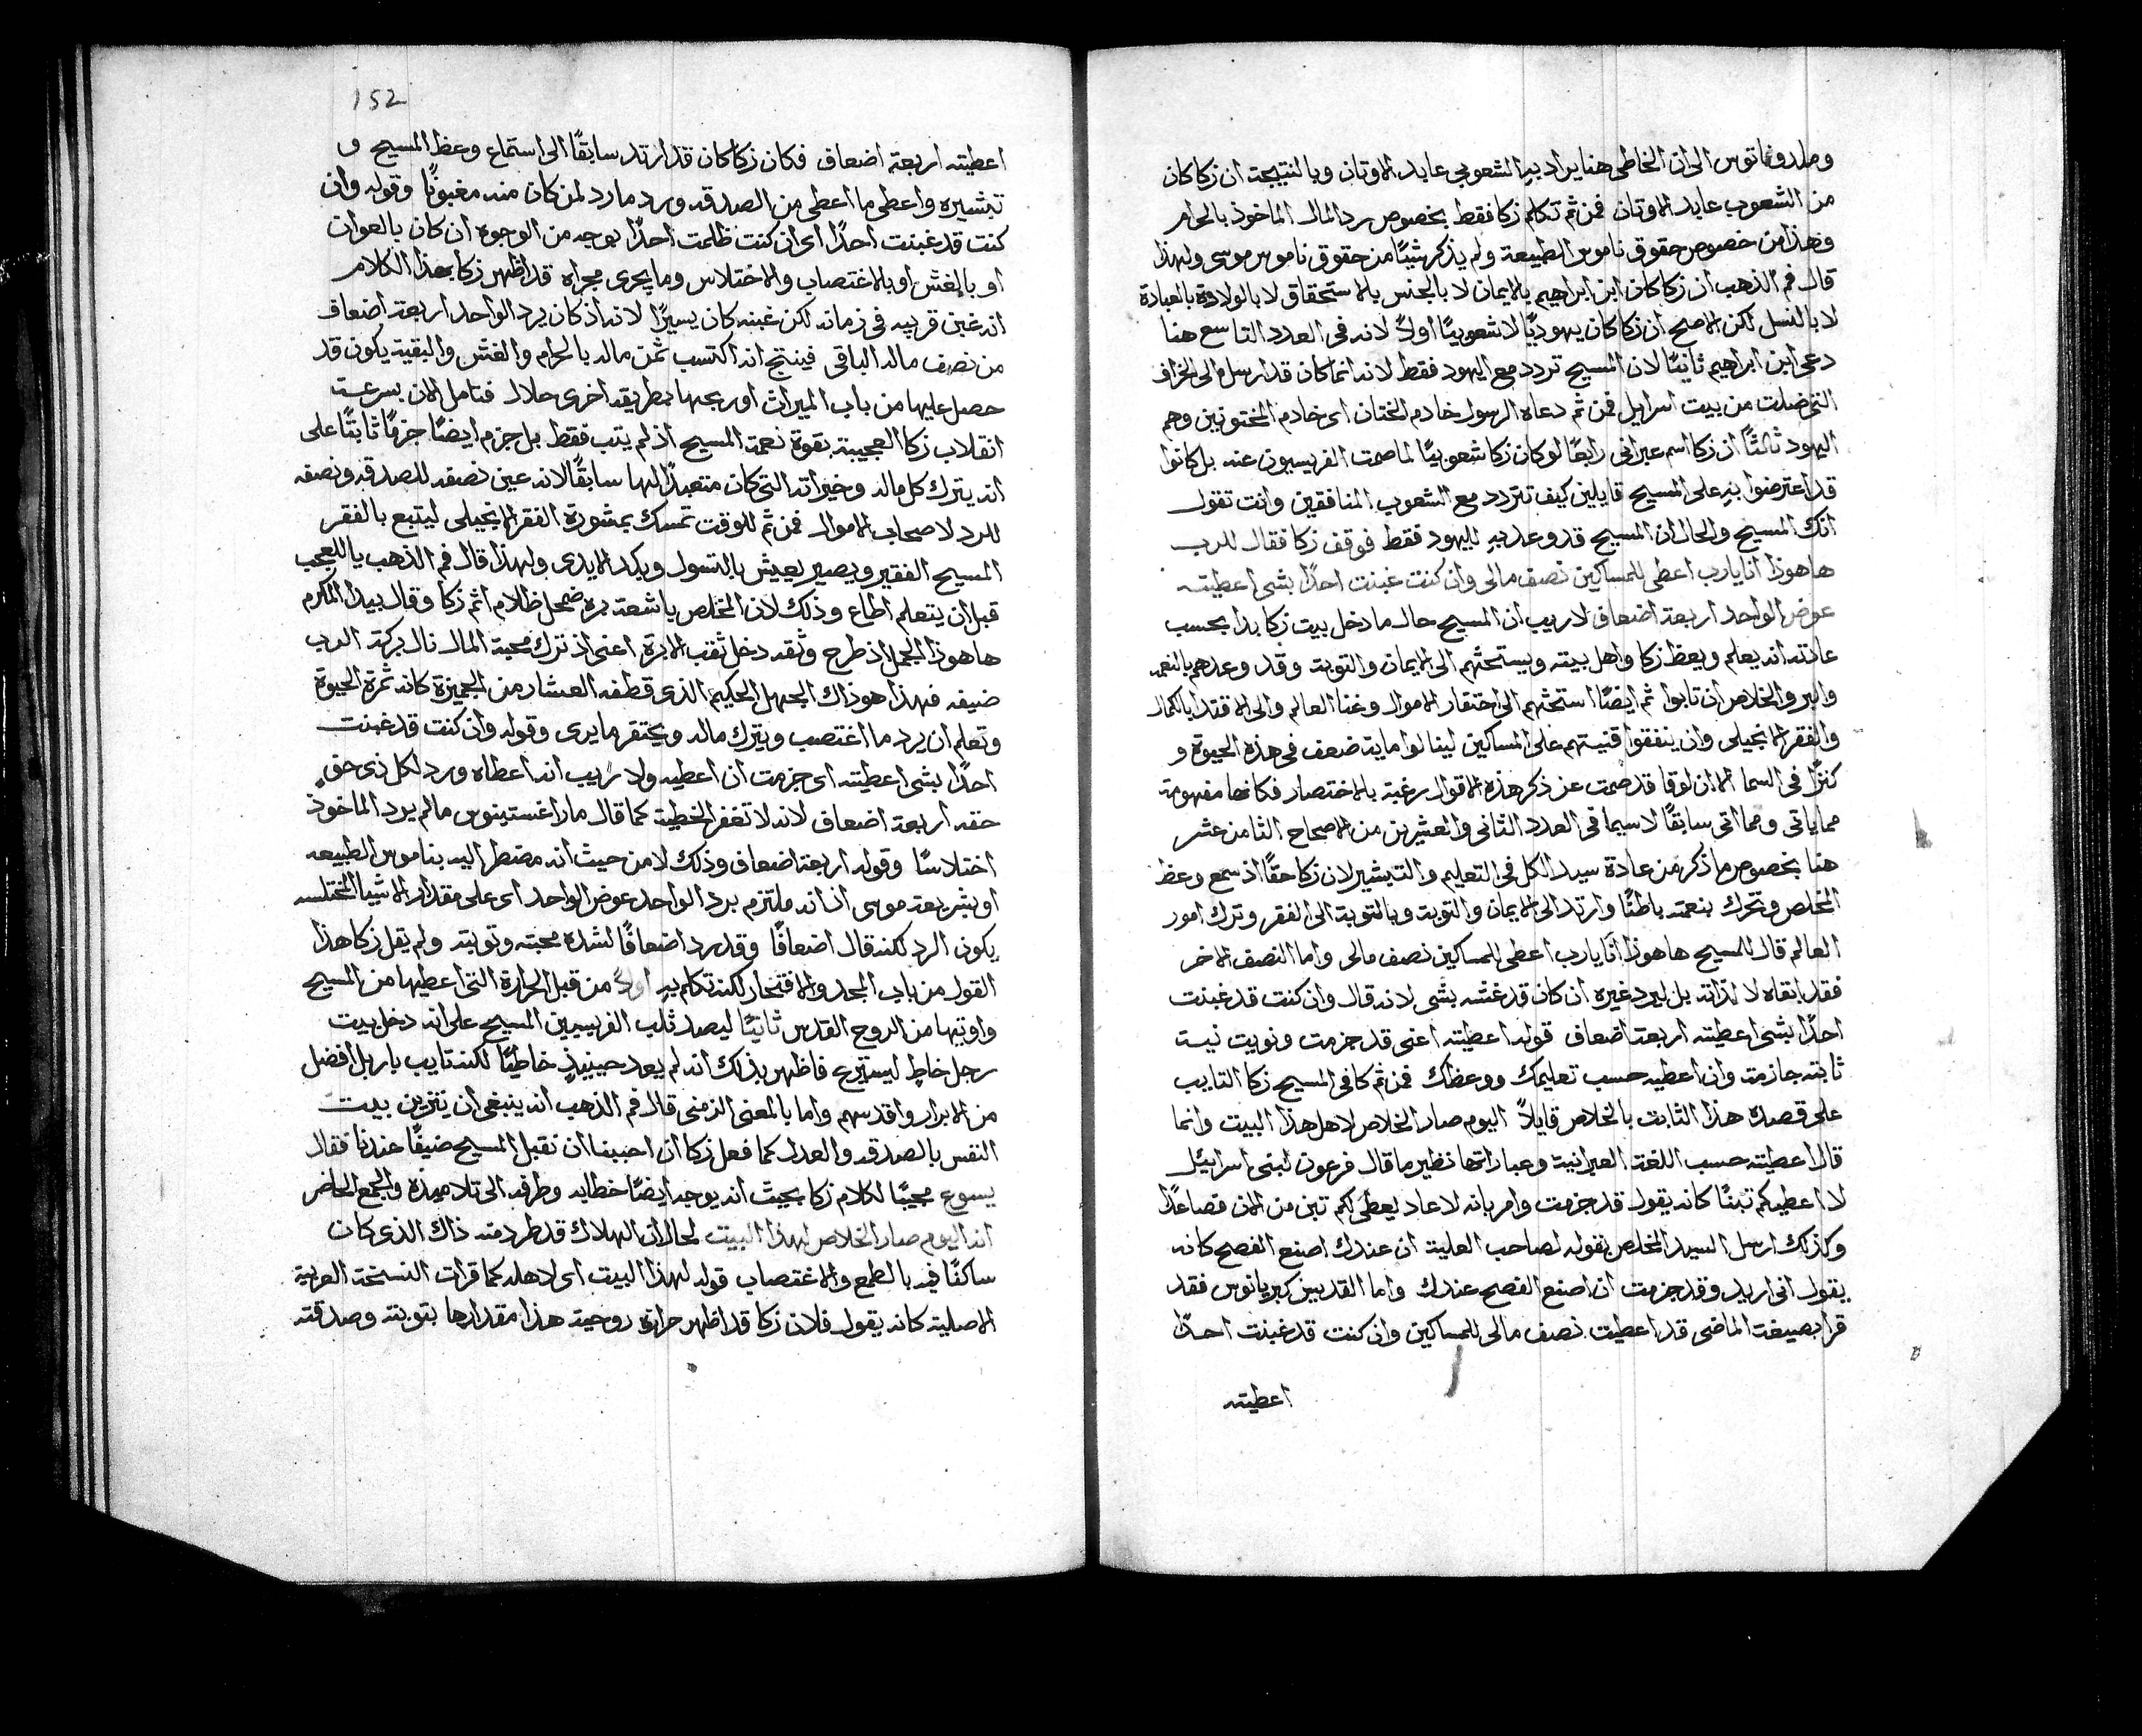 وملدوناتوس الى ان الخاطى هنا يراد بهِ الشعوبي عابد الاوتان وبالنتيجة ان زكا كان
من الشعوب عابد الاوتان فمن ثم تكلم زكا فقط بخصوص رد المال الماخوذ بالحرام
وهذا من خصوص حقوق ناموس الطبيعة ولم يذكر شيًا من حقوق ناموس موسى ولهذا
قال فم الذهب ان زكا كان ابن ابراهيم بالايمان لا بالجنس بالاستحقاق لا بالولادة بالعبادة
لا بالنسل لكن الاصح ان زكا كان يهوديًا لا شعوبيًا اولاً لانه فى العدد التاسع هنا
دعى ابن ابراهيم ثانيًا لان المسيح تردد مع اليهود فقط لانه انما كان قد ارسل الى الخراف
التى ضلت من بيت اسرايل فمن ثم دعاه الرسول خادم الختان اى خادم المختونين وهم
اليهود ثالثًا ان زكا اسم عبرانى رابعًا لو كان زكا شعوبيًا لما صمت الفريسيون عنه بل كانوا
قد اعترضوا بهِ على المسيح قايلين كيف تتردد مع الشعوب المنافقين وانت تقول
انك المسيح والحال ان المسيح قد وعد بهِ لليهود فقط فوقف زكا فقال للرب
هاهوذا انا يارب اعطى للمساكين نصف مالى وان كنت غبنت احدًا بشى اعطيته
عوض الواحد اربعة اضعاف لاريب ان المسيح حال ما دخل بيت زكا بدا بحسب
عادته انه يعلم ويعظ زكا واهل بيته ويستحثهم الى الايمان والتوبة وقد وعدهم بالنعمه
والبر والخلاص ان تابوا ثم ايضًا استحثهم الى احتقار الاموال وغنا العالم والى الاقتدا بالكمال
والفقر الانجيلى وان ينفقوا قنيتهم على المساكين لينالوا ماية ضعف فى هذه الحيوة و
كنزًا فى السما الا ان لوقا قد صمت عن ذكر هذه الاقوال رغبة بالاختصار فكانها مفهومة
مما ياتى ومما اتى سابقًا لا سيما فى العدد الثانى والعشرين من الاصحاح الثامن عشر
هنا بخصوص ما ذكر من عادة سيد الكل فى التعليم والتبشير لان زكا حقًا اذ سمع وعظ
المخلص وتحرك بنعمته باطنًا وارتد الى الايمان والتوبة وبالتوبة الى الفقر وترك امور
العالم قال للمسيح هاهوذا انَا يارب اعطى للمساكين نصف مالى واما النصف الاخر
فقد ابقاه لا لذاته بل ليرد غيره ان كان قد غشه بشى لانه قال وان كنت قد غبنت
احدًا بشى اعطيته اربعة اضعاف قوله اعطيته اعنى قد جزمت ونويت نية
ثابتة جازمة وان اعطيه حسب تعليمك ووعظك فمن ثم كافى المسيح زكا التايب
على قصده هذا الثابت بالخلاص قايلاً اليوم صار الخلاص لاهل هذا البيت وانما
قال اعطيته حسب اللغة العبرانية وعباراتها نظير ما قال فرعون لبنى اسرائيل
لا اعطيكم تبنًا كانه يقول قد جزمت وامر بانه لا عاد يعطى لكم تبن من الان فصاعدًا
وكذلك ارسل السيد المخلص بقوله لصاحب العلية ان عندك اصنع الفصح كانه
يقول انى اريد وقد جزمت ان اصنع الفصح عندك واما القديس كبريانوس فقد
قرا بصيغة الماضى قد اعطيت نصف مالى للمساكين وان كنت قد غبنت احدًا
اعطيته
152
اعطيته اربعة اضعاف فكان زكا كان قد ارتد سابقًا الى استماع وعظ المسيح و
تبشيره واعطى ما اعطى من الصدقه ورد ما رد لمن كان منه مغبونًا وقوله وان
كنت قد غبنت احدًا اى ان كنت ظلمت احدًا بوجه من الوجوه ان كان بالعوان
او بالغش او بالاغتصاب والاختلاس وما يجرى مجراه قد اظهر زكا بهذا الكلام
انه غبن قريبه فى زمانه لكن غبنه كان يسيرًا لانه اذ كان يرد الواحد اربعة اضعاف
من نصف ماله الباقى فينتج انه اكتسب ثمن ماله بالحرام والغش والبقية يكون قد
حصل عليها من باب الميراث او ربحها بطريقه اخرى حلال فتامل الان بسرعة
انقلاب زكا العجيبة بقوة نعمة المسيح اذ لم يتب فقط بل جزم ايضًا جزمًا ثابتًا على
انه يترك كل ماله وخيراته التى كان متعبدًا لها سابقًا لانه عين نصفه للصدقه ونصفه
للرد لاصحاب الاموال فمن ثم للوقت تمسك بمشورة الفقر الانجيلى ليتبع بالفقر
المسيح الفقير ويصير يعيش بالتسول وبكد الايدى ولهذا قال فم الذهب ياللعجب
قبل ان يتعلم اطاع وذلك لان المخلص باشعة بره ضمحل ظلام اثم زكا وقال بيدا المكرم
هاهوذا الجمل اذ طرح وثقه دخل ثقب الابرة اعنى اذ ترك محبة المال نال بركة الرب
ضيفه فهذا هو ذاك الجهل الحكيم الذى قطفه العشار من الجميزة كانه ثمرة الحيوة
وتعلم ان يرد ما اغتصب ويترك ماله ويحتقر ما يرى وقوله وان كنت قد غبنت
احدًا بشى اعطيته اى جزمت ان اعطيه ولا ريب انه اعطاه ورد لكل ذى حقٍ
حقه اربعة اضعاف لانه لا تغفر الخطية كما قال مار اغستينوس ما لم يرد الماخوذ
اختلاسًا وقوله اربعة اضعاف وذلك لا من حيث انه مضطر اليه بناموس الطبيعه
او بشريعة موسى اذ انه ملتزم برد الواحد عوض الواحد اى على مقدار الاشيا المختلسه
يكون الرد لكنه قال اضعافًا وقد رد اضعافًا لشدة محبته وتوبته ولم يقل زكا هذا
القول من باب المجد والافتخار لكنه تكلم بهِ اولاً من قبل الحرارة التى اعطيها من المسيح
واوتيها من الروح القدس ثانيًا ليصد ثلب الفريسيين المسيح على انه دخل بيت
رجل خاطٍ ليستريح فاظهر بذلك انه لم يعد حينيذٍ خاطيًا لكنه تايب بار بل افضل
من الابرار واقدسهم واما بالمعنى الزمنى قال فم الذهب انه ينبغى ان يتزين بيت
النفس بالصدقه والعدل كما فعل زكا ان احببنا ان نقبل المسيح ضيفًا عندنا فقال
يسوع مجيبًا لكلام زكا بحيث انه يوجه ايضًا خطابه وطرفه الى تلاميذه والجمع الحاضر
انه اليوم صار الخلاص لهذا البيت لحال ان الهلاك قد طرد منه ذاك الذى كان
ساكنًا فيه بالطمع والاغتصاب قوله لهذا البيت اى لاهله كما قرات النسخة العربية
الاصلية كانه يقول فلان زكا قد اظهر حرارة روحية هذا مقدارها بتوبته وصدقته